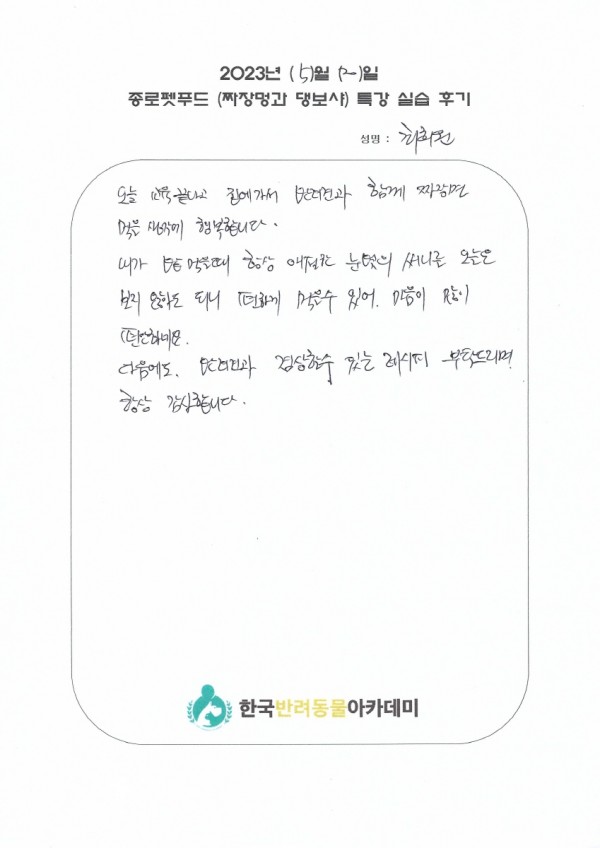 2023년 (5)월 (2)일
종로펫푸드 (짜장멍과 댕보샤) 특강 실습 후기
성명 : 최희원
오늘 교육 끝나고 집에가서 반려견과 함께 짜장면
먹을 생각에 행복합니다.
내가 밥 먹을때 항상 애절한 눈빛의 써니를 오늘은
보지 않아도 되니 편하게 먹을수 있어. 마음이 많이
편안하네요.
다음에도. 반려견과 겸상할수 있는 레시피 부탁드리며
항상 감사합니다.
한국반려동물아카데미